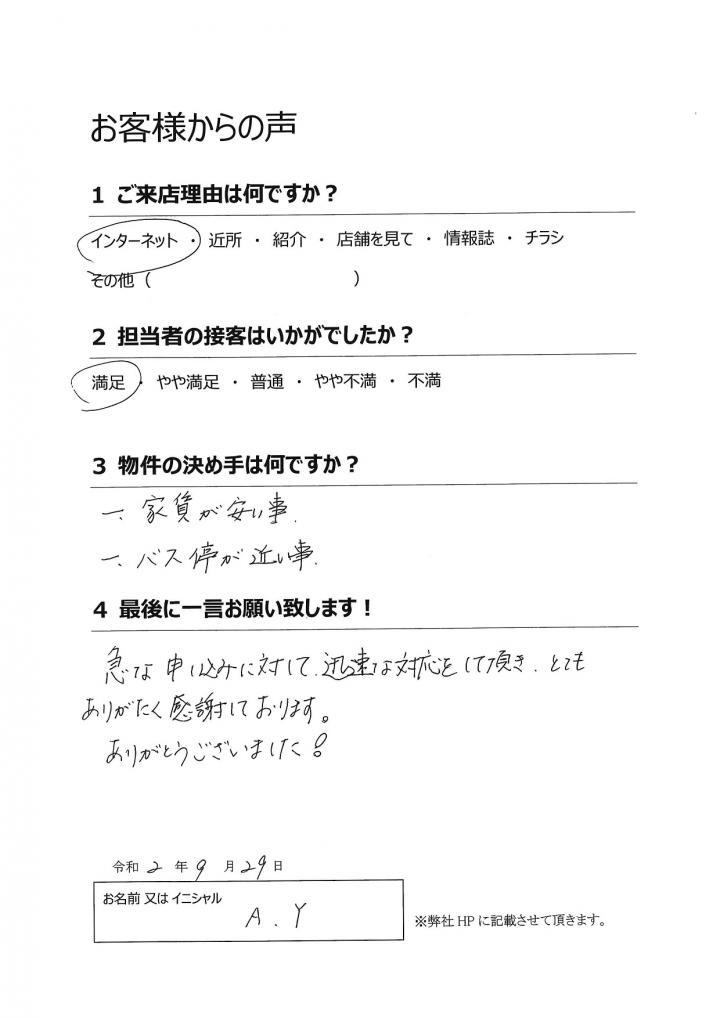 お客様からの声
1 ご来店理由は何ですか？
インターネット ・ 近所 ・ 紹介 ・ 店舗を見て ・ 情報誌 ・ チラシ
その他（　　　　　　　　　　　　）
2 担当者の接客はいかがでしたか？
満足 ・ やや満足 ・ 普通 ・ やや不満 ・ 不満
3 物件の決め手は何ですか？
一、家賃が安い事.
一、バス停が近い事.
4 最後に一言お願い致します！
急な申し込みに対して、迅速な対応をして頂き、とても
ありがたく感謝しております。
ありがとうございました！
令和 2 年 9 月 29 日
お名前 又は イニシャル
A.Y
※弊社 HP に記載させて頂きます。